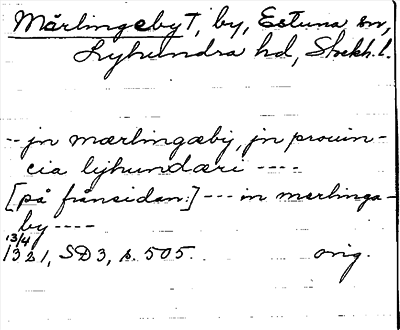 Mårlingeby †, by, Estuna sn,
Lyhundra hd, Stockh. l.
-- jn mærlingæbij, jn prouin-
cia lijhundæri ----
[på frånsidan:] --- in merlinga-
by ----
13/4
1321, SD3, s. 505. orig.